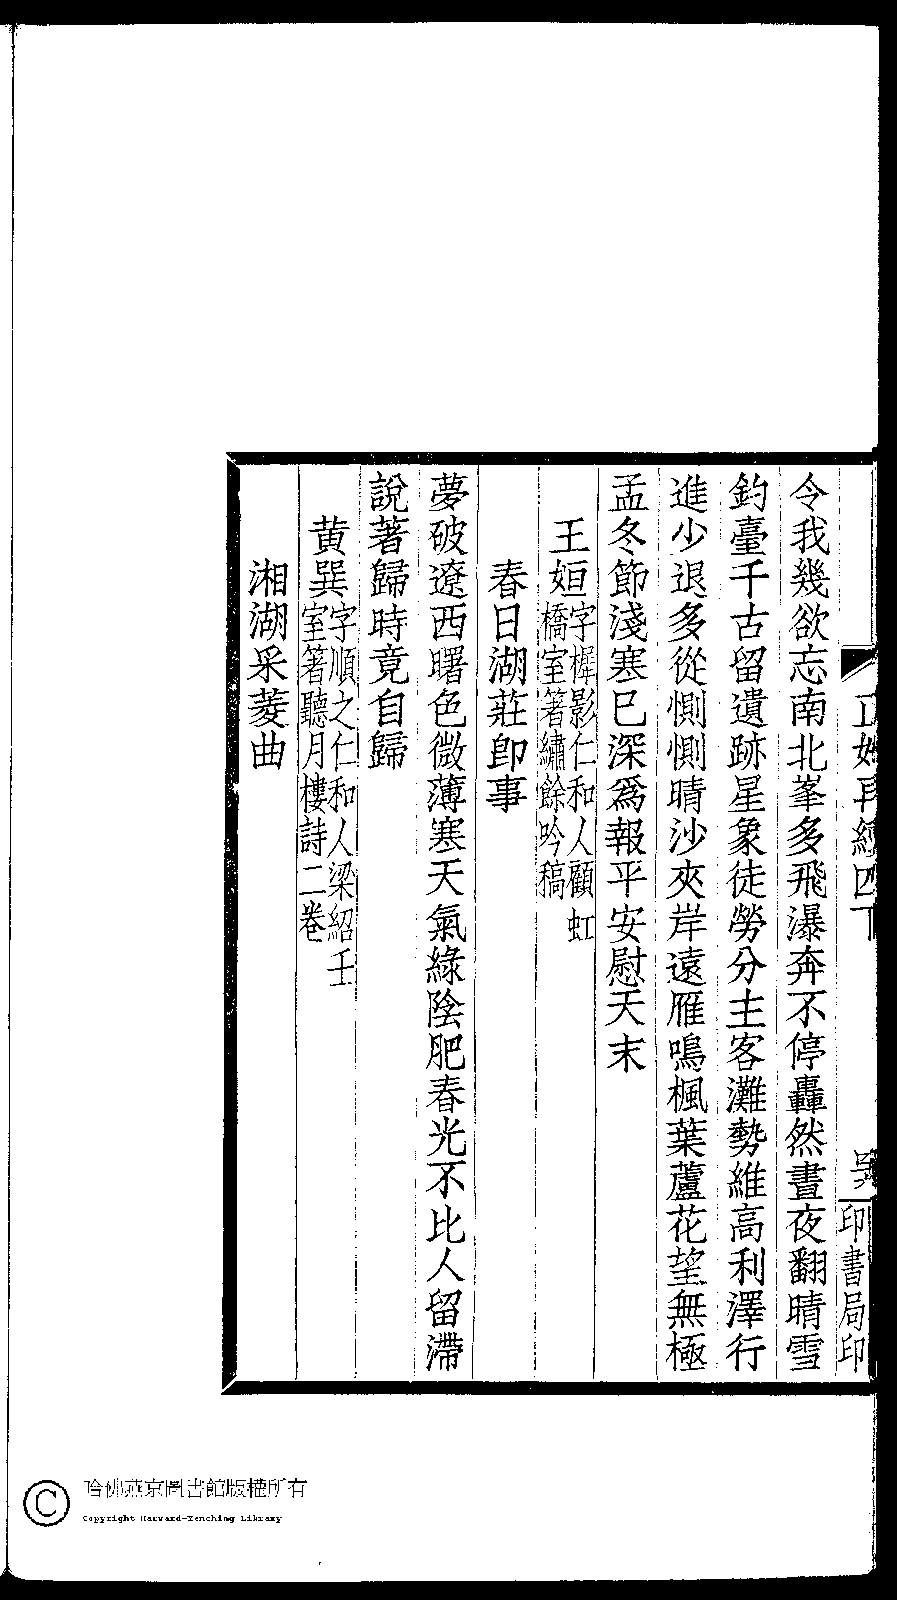 正始再續四下
印書局印
令我幾欲忘南北峯多飛瀑奔不停轟然晝夜翻晴雪
釣臺千古留遺跡星象徒勞分主客灘勢維高利澤行
進少退多從惻惻晴沙夾岸遠雁鳴楓葉蘆花望無極
孟冬節淺寒已深為報平安慰天末
王姮字樨影仁和人顧虹
橋室著繡餘吟稿
春日湖莊即事
夢破遼西曙色微薄寒天氣綠陰肥春光不比人留滯
說著歸時竟自歸
黄巽字順之仁和人梁紹壬
室著聽月樓詩二卷
湘湖采菱曲
哈佛燕京圖書館版權所有
Copyright Harvard-Yenching Library